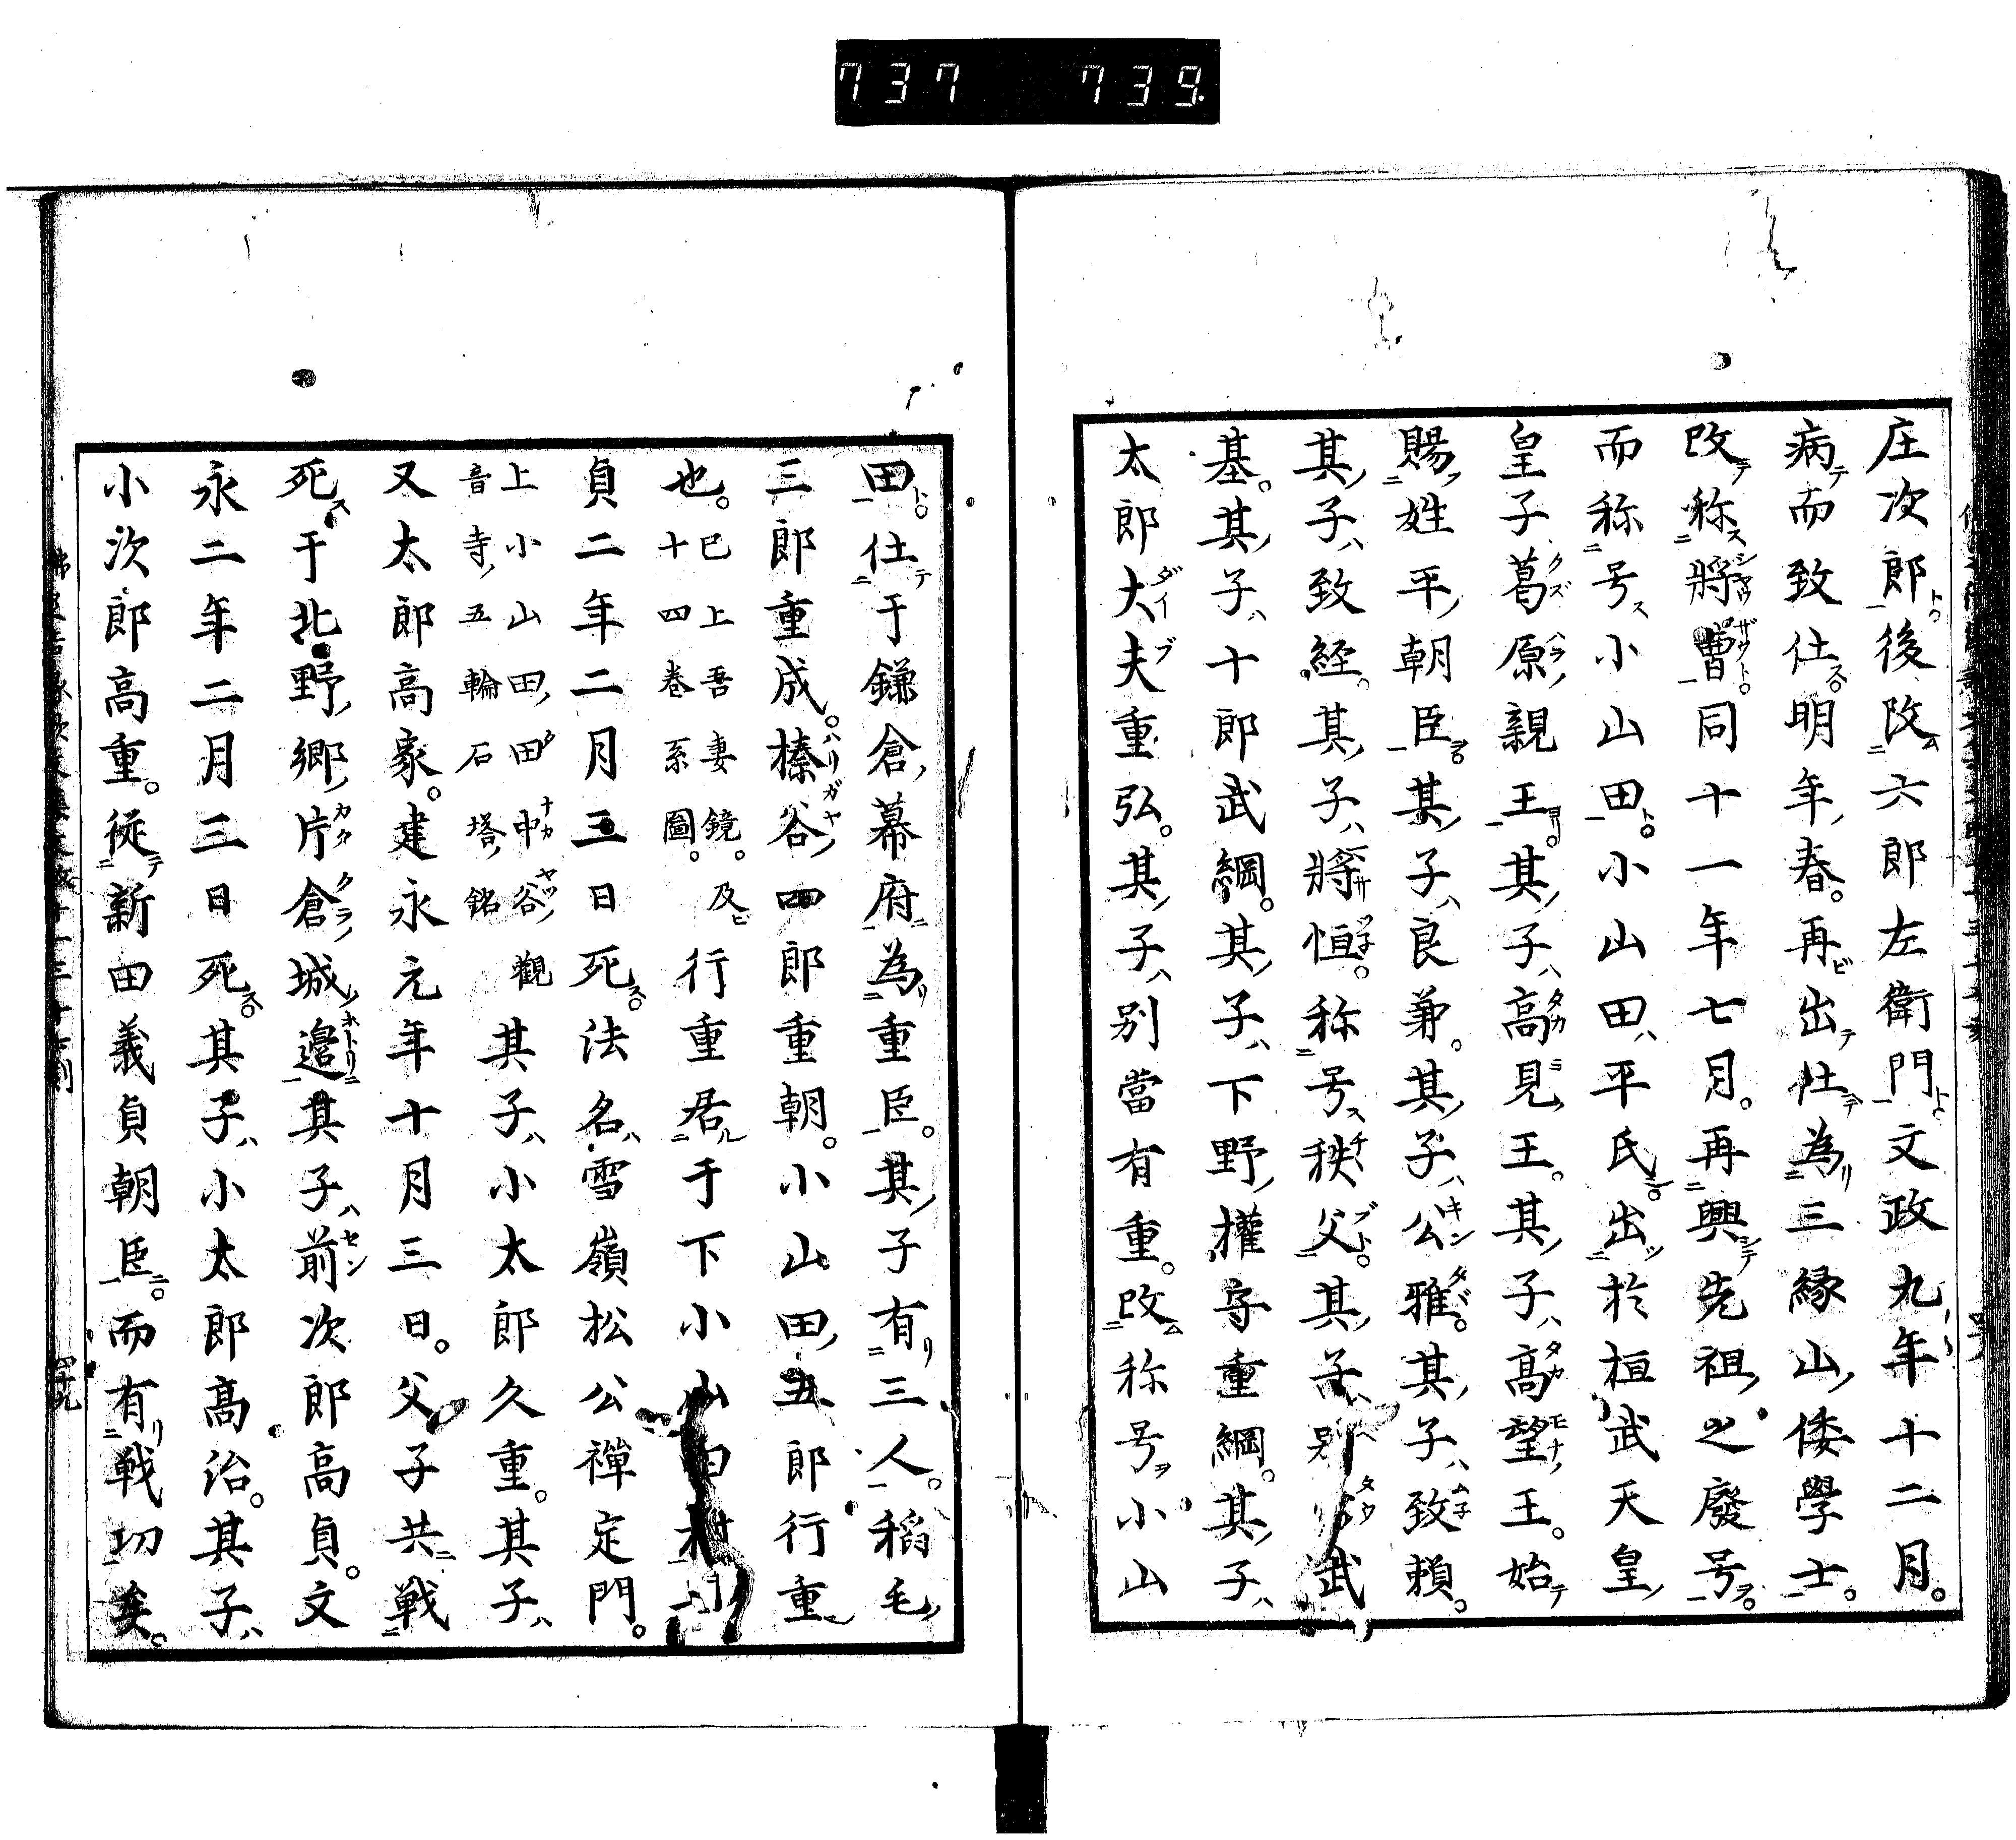 737 739
庄次郎後改六郎左衛門文政九年十二月。
病而致仕明年春。再出仕為三縁山倭學士。
改称將曹同十一年七月。再興先祖之廢号。
而称号小山田。小山田平氏。出於桓武天皇
皇子葛原親王。其子高見王。其子高望王。始
賜姓平朝臣。其子良兼。其子公雅。其子致頼。
其子致経。其子將恒。称号秩父。其子別當武
基。其子十郎武綱。其子下野權守重綱。其子
太郎大夫重弘。其子別當有重。改称号小山
田。仕于鎌倉幕府為重臣。其子有三人。稲毛
三郎重成。榛谷四郎重朝。小山田五郎行重
也。已上吾妻鏡。及十四巻系圖。行重居于下小山田村
貞二年二月三日死。法名雪嶺松公禪定門。
上小山田田中谷觀音寺五輪石塔銘其子小太郎久重。其子
又太郎高家。建永元年十月三日。父子共戦
死于北野郷片倉城邉其子前次郎高貞。文
永二年二月三日死。其子小太郎高治。其子
小次郎高重。従新田義貞朝臣。而有戦功矣。
四十九